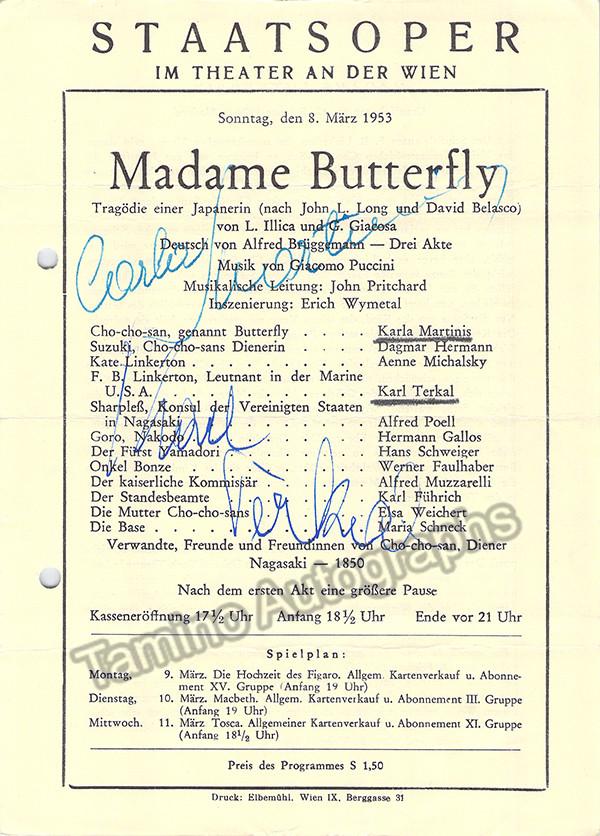 STAATSOPER
IM THEATER AN DER WIEN
Sonntag, den 8. März 1953
Madame Butterfly
Tragödie einer Japanerin (nach John L. Long und David Belasco)
von L. Illica und G. Giacosa
Deutsch von Alfred Brüggemann — Drei Akte
Musik von Giacomo Puccini
Musikalische Leitung: John Pritchard
Inszenierung: Erich Wymetal
Carla Martinis
Cho-cho-san, genannt Butterfly . . . . Karla Martinis
Suzuki, Cho-cho-sans Dienerin . . . . Dagmar Hermann
Kate Linkerton . . . . . . . . . . Aenne Michalsky
F. B. Linkerton, Leutnant in der Marine
U. S. A. . . . . . . . . . . . Karl Terkal
Sharpleß, Konsul der Vereinigten Staaten
in Nagasaki . . . . . . . . . . Alfred Poell
Goro, Nakodo . . . . . . . . . . Hermann Gallos
Der Fürst Yamadori . . . . . . . . Hans Schweiger
Onkel Bonze . . . . . . . . . . Werner Faulhaber
Der kaiserliche Kommissär . . . . . . Alfred Muzzarelli
Der Standesbeamte . . . . . . . . Karl Führich
Die Mutter Cho-cho-sans . . . . . . Elsa Weichert
Die Base . . . . . . . . . . . Maria Schneck
Karl Terkal
Verwandte, Freunde und Freundinnen von Cho-cho-san, Diener
Nagasaki — 1850
Nach dem ersten Akt eine größere Pause
Kasseneröffnung 17½ Uhr Anfang 18½ Uhr Ende vor 21 Uhr
Tamino Autographs
Spielplan:
Montag, 9. März. Die Hochzeit des Figaro. Allgem. Kartenverkauf u. Abonne-
ment XV. Gruppe (Anfang 19 Uhr)
Dienstag, 10. März. Macbeth. Allgem. Kartenverkauf u. Abonnement III. Gruppe
(Anfang 19 Uhr)
Mittwoch. 11. März Tosca. Allgemeiner Kartenverkauf u. Abonnement XI. Gruppe
(Anfang 18½ Uhr)
Preis des Programmes S 1,50
Druck: Elbemühl, Wien IX, Berggasse 31